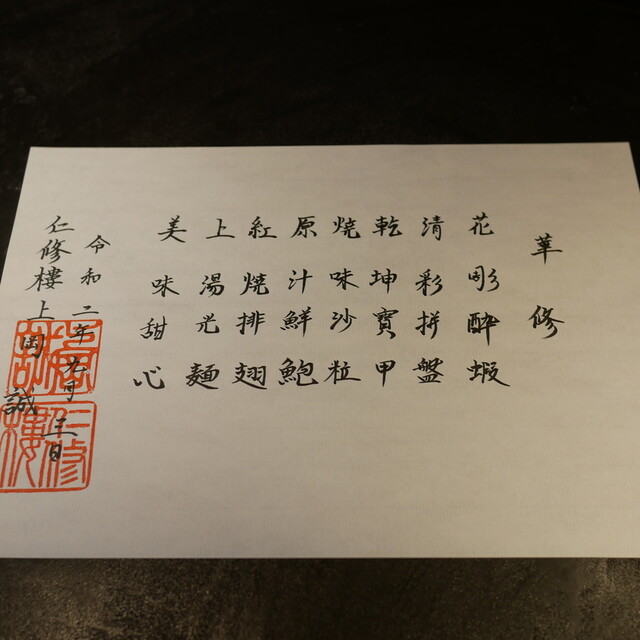 華修
花彫酔蝦
清彩拼盤
乾坤寶甲
焼味沙粒
原汁鮮鮑
紅焼排翅
上湯光麵
美味甜心
令和二年九月三日
仁修樓上岡誠